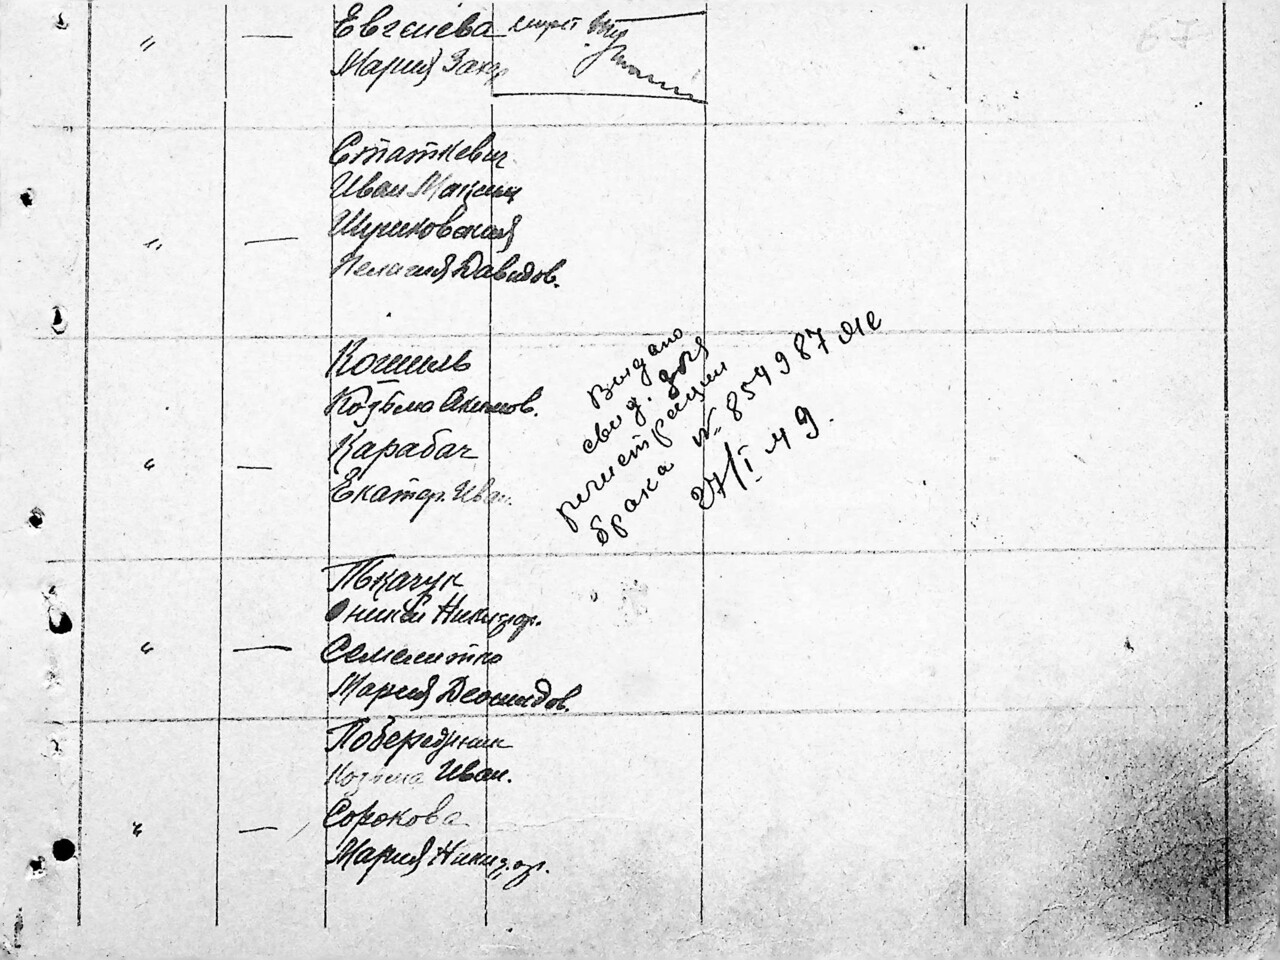 67
" — Евгеиева секрет
Мария Захар
Статкевич
Иван Максим
Шушковская
" —
Пелагия Давидов.
Кошель
Козьма Акимов.
Карабач
" —
Екатер. Иван.
Выдано
свид. для
регистрации
брака № 854987 яе
27/I 49.
Ткачук
Оникей Никифор.
" — Семенитко
Мария Леонидов.
Побережник
Козьма Иван.
" — Сорокова
Мария Никифор.